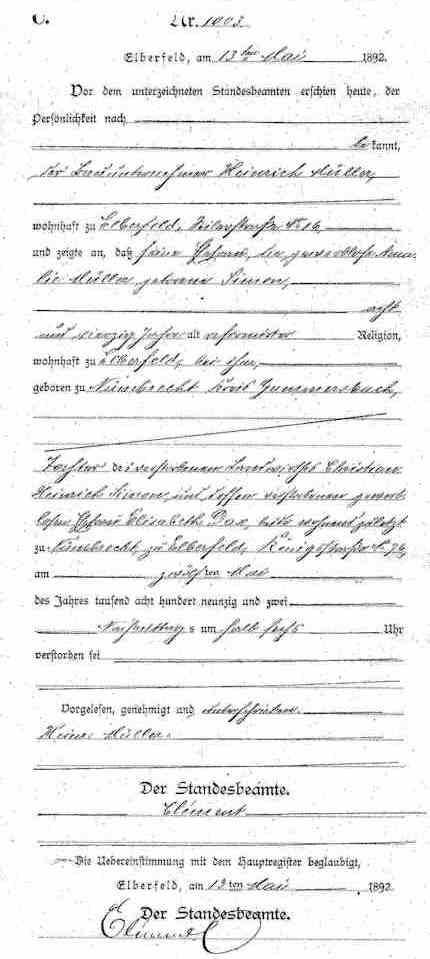 C.
Nr. 1003
Elberfeld, am 13ten Mai 1892.
Vor dem unterzeichneten Standesbeamten erschien heute, der
Persönlichkeit nach
bekannt,
der Bauunternehmer Heinrich Müller,
wohnhaft zu Elberfeld, № 16,
und zeigte an, daß seine Ehefrau, die gewerblose Ama-
lie Müller geborene Simon,
acht
und vierzig Jahre alt reformirter Religion,
wohnhaft zu Elberfeld, bei ihm,
geboren zu Nümbrecht Kreis Gummersbach,
Tochter des verstorbenen Landwirths Christian
Heinrich Simon, und dessen verstorbener gewerb-
losen Ehefrau Elisabeth Dax, beide wohnend zuletzt
zu Nümbrecht, zu Elberfeld, Königsstraße № 76,
am zwölften Mai
des Jahres tausend acht hundert neunzig und zwei
Nachmittags um halb sechs Uhr
verstorben sei
Vorgelesen, genehmigt und unterschrieben.
Heinr. Müller.
Der Standesbeamte.
Clément
Die Uebereinstimmung mit dem Hauptregister beglaubigt,
Elberfeld, am 13ten Mai 1892
Der Standesbeamte.
Clément